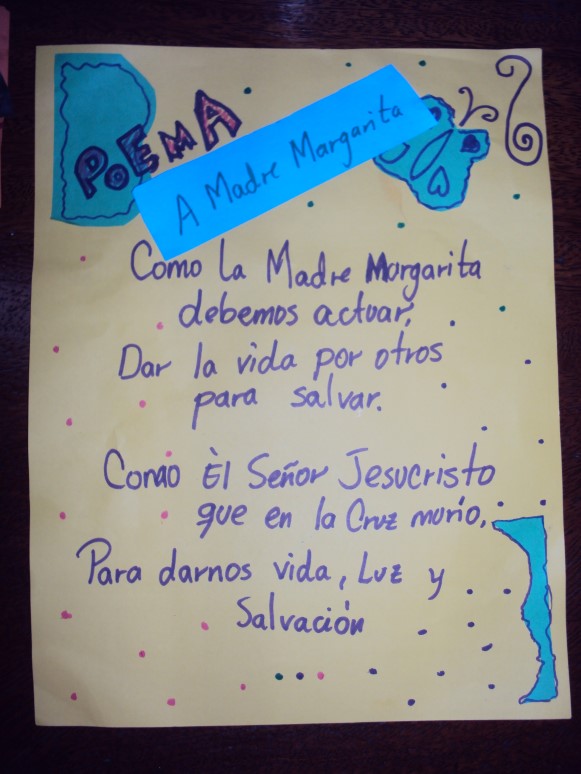 POEMA
A Madre Margarita
Como la Madre Margarita
debemos actuar,
Dar la vida por otros
para salvar.
Como Èl Señor Jesucristo
que en la Cruz murío,
Para darnos vida, Luz y
Salvación
...